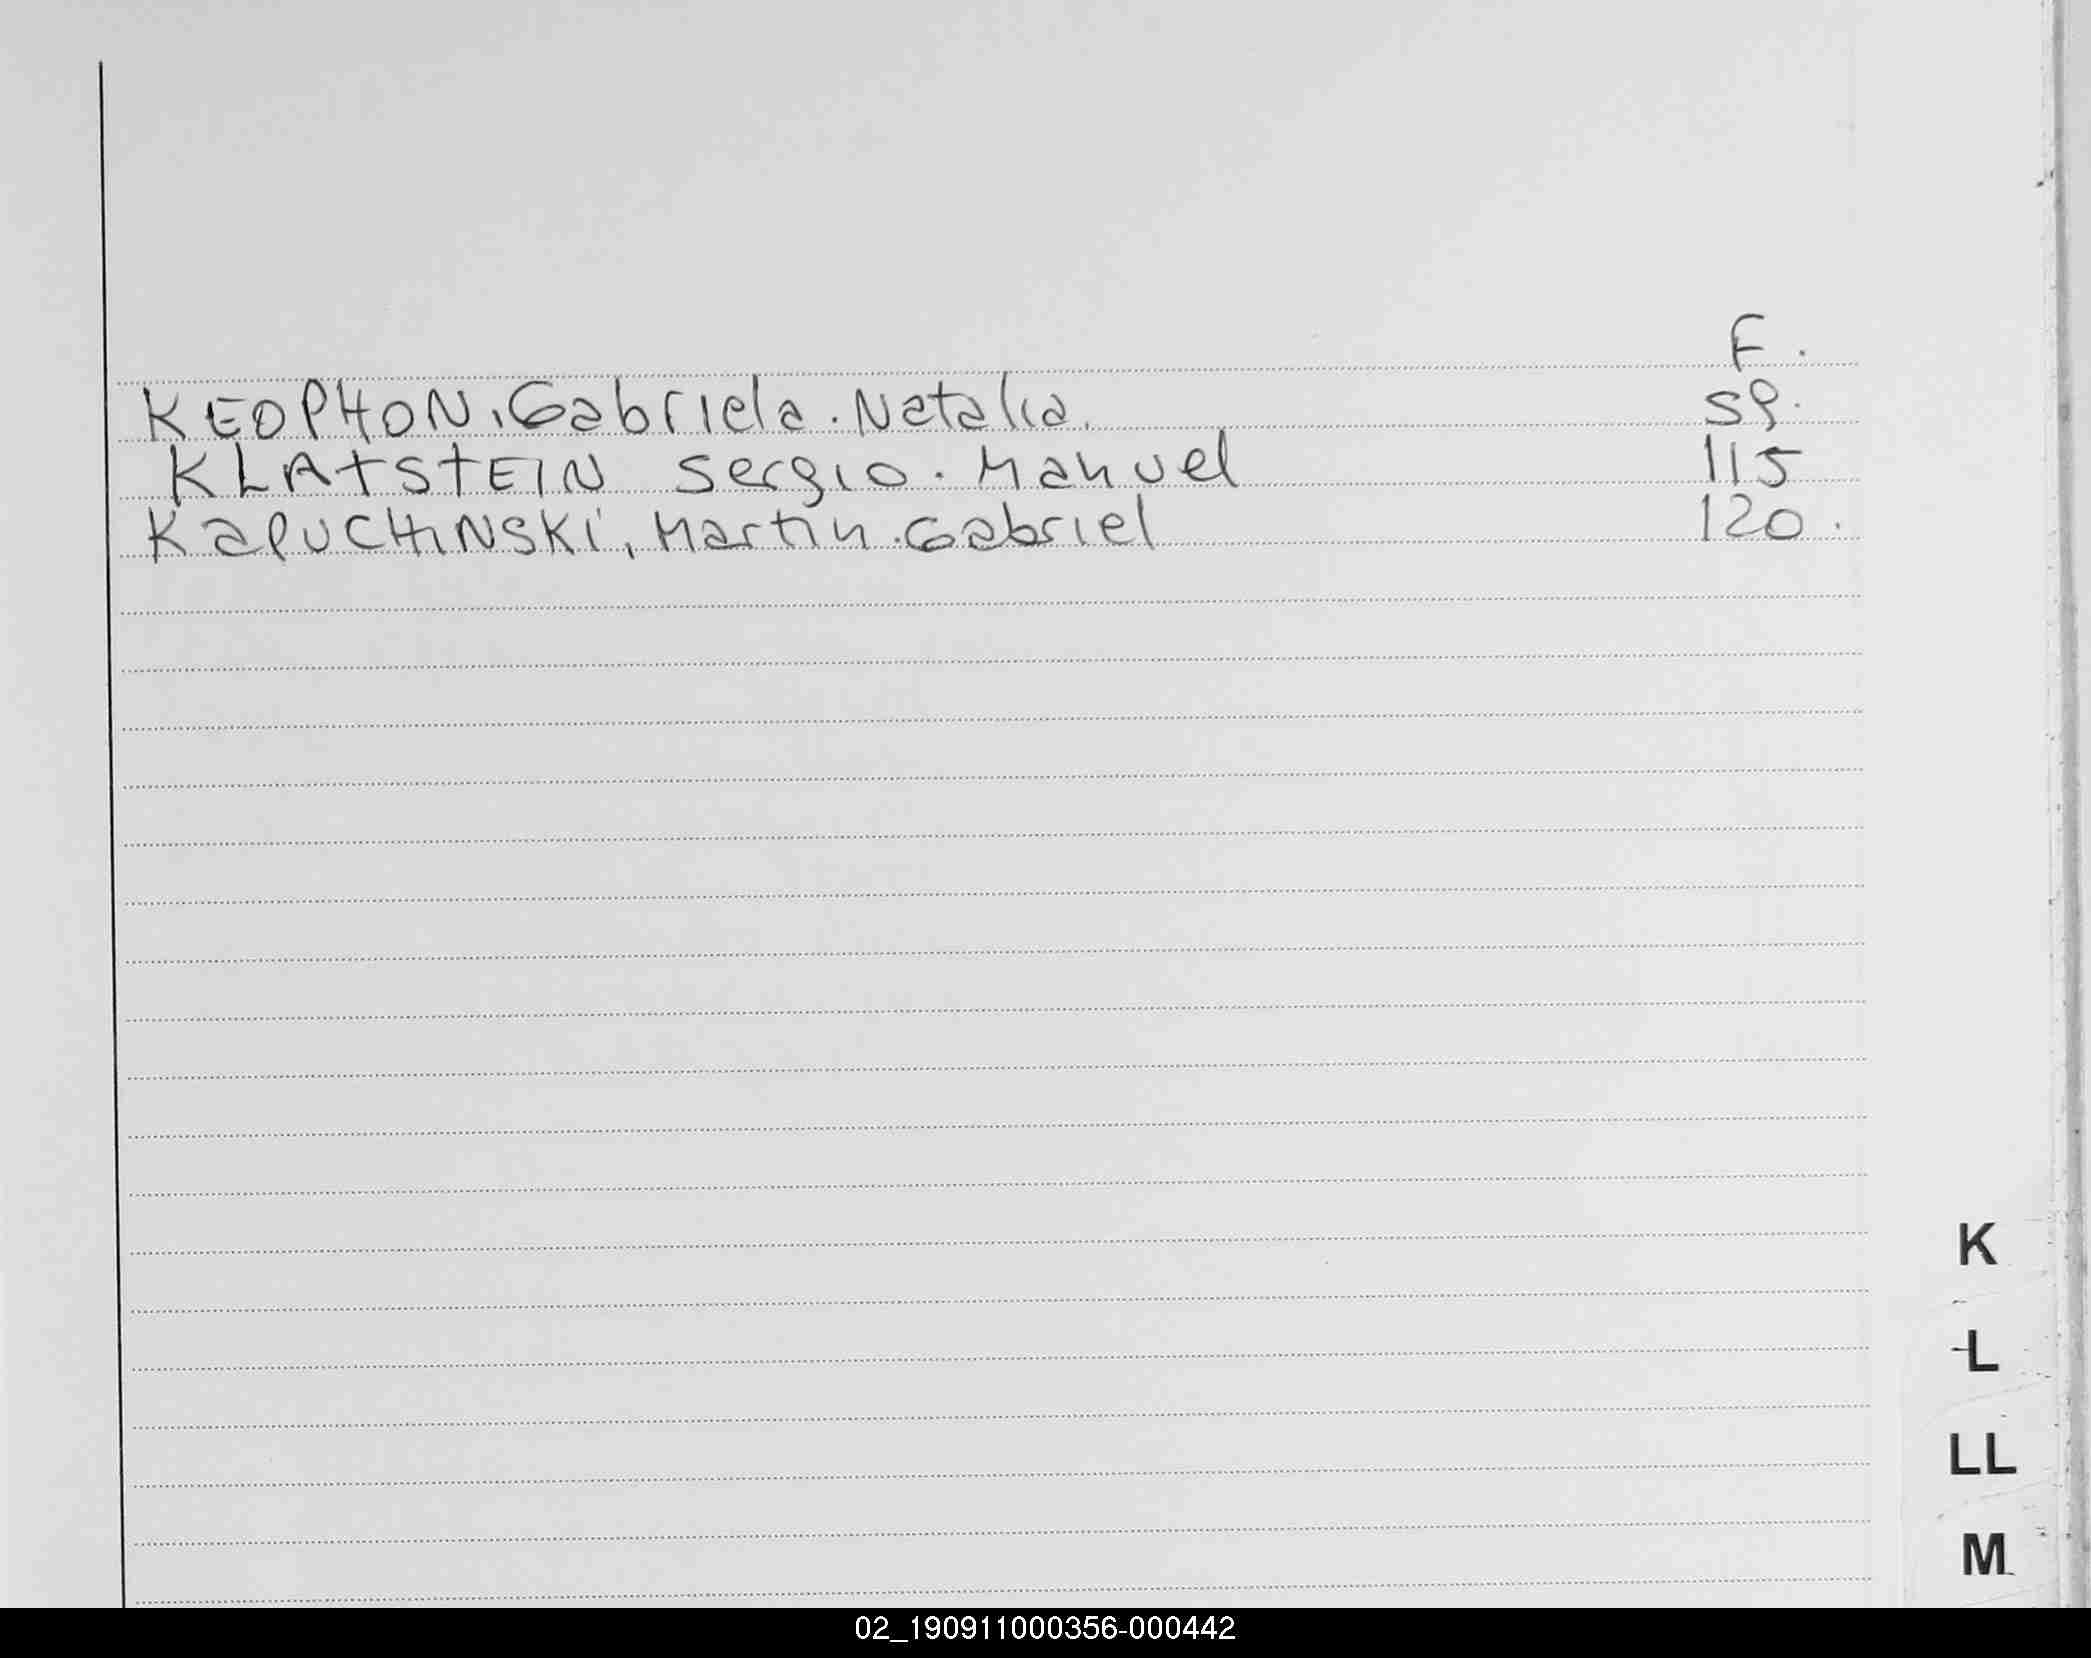 F.
KEOPHON, Gabriela. Natalia. 59.
KLATSTEIN Sergio. Manuel 115
KAPUCHINSKI, Martin. Gabriel 120.
K
L
LL
M
02_190911000356-000442